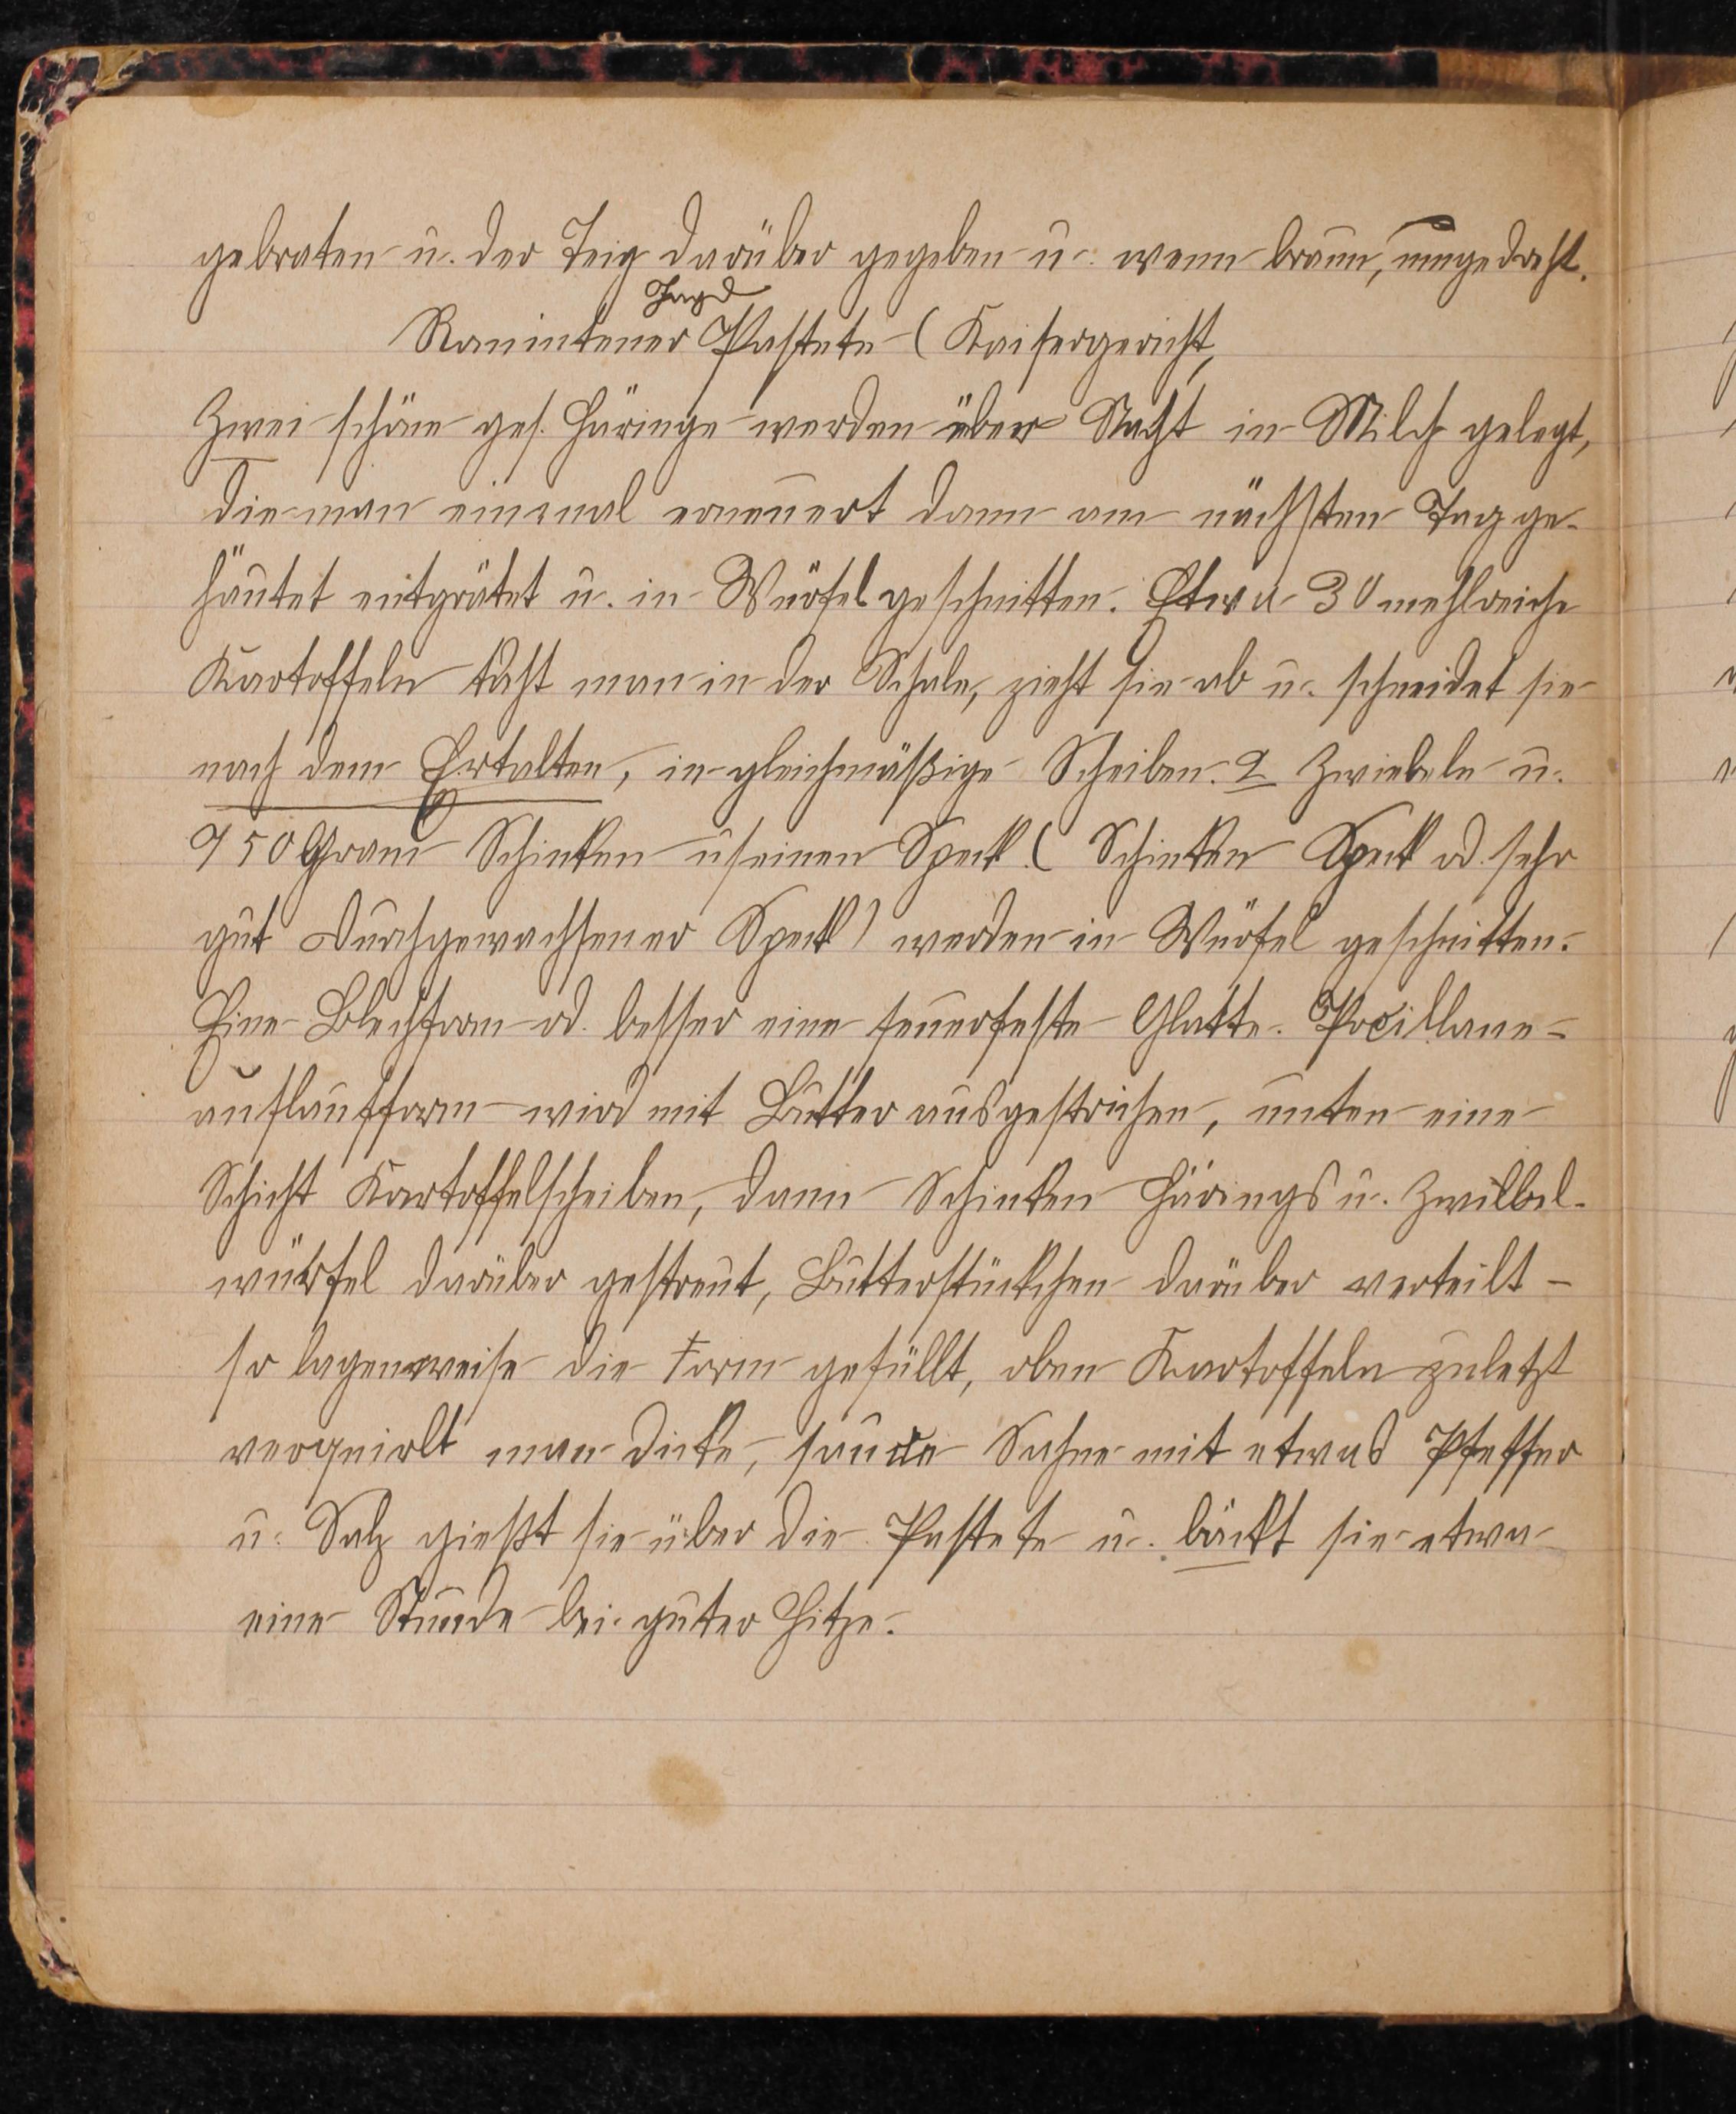 gebraten u. der Teig darüber gegeben u. wenn braun, umgedreht.
Jagd
Romintener Pastete (Kaisergericht,
Zwei schöne ges. Häringe werden über Nacht in Milch gelegt,
die man einmal erneuert dann am nächsten Tag ge-
häutet entgrätet u. in Würfel geschnitten. Etwa 30 mehlreiche
Kartoffeln kocht man in der Schale, zieht sie ab u. schneidet sie
nach dem Erkalten, in gleichmäßige Scheiben. 2 Zwiebeln u.
750 Gram Schinken u seinen Speck (Schinken Speck od. sehr
gut durchgewachsener Speck) werden in Würfel geschnitten.
Eine Blechform od. besser eine feuerfeste Glatte.
auflaufform wird mit Butter ausgestrichen, unten eine
Schicht Kartoffelscheiben, dann Schinken Härings u. Zwiebel-
würfel darüber gestreut, Butterstückchen darüber verteilt –
so lagenweise die Form gefüllt, oben Kartoffeln zuletzt
verquirlt man dicke, saure Sahne mit etwas Pfeffer
u. Salz gießt sie über die Pastete u. bäckt sie etwa
eine Stunde bei guter Hitze.